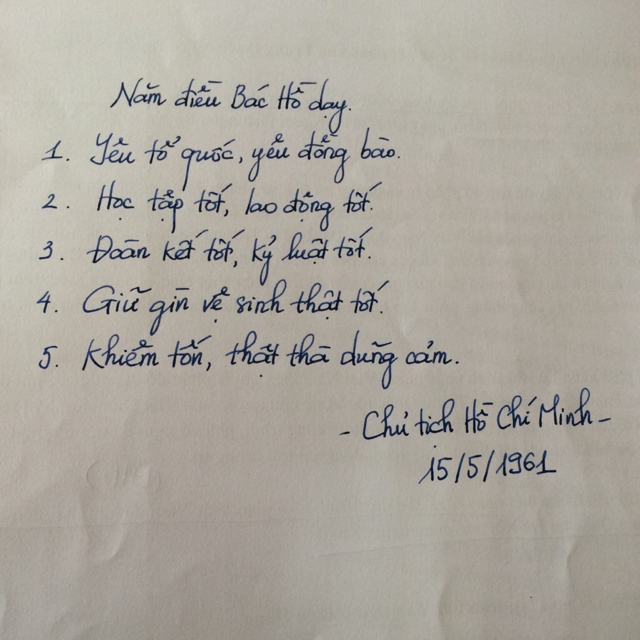 Năm điều Bác Hồ dạy.
1. Yêu tổ quốc, yêu đồng bào.
2. Học tập tốt, lao động tốt.
3. Đoàn kết tốt, kỷ luật tốt.
4. Giữ gìn vệ sinh thật tốt.
5. Khiêm tốn, thật thà dũng cảm.
- Chủ tịch Hồ Chí Minh -
15/5/1961